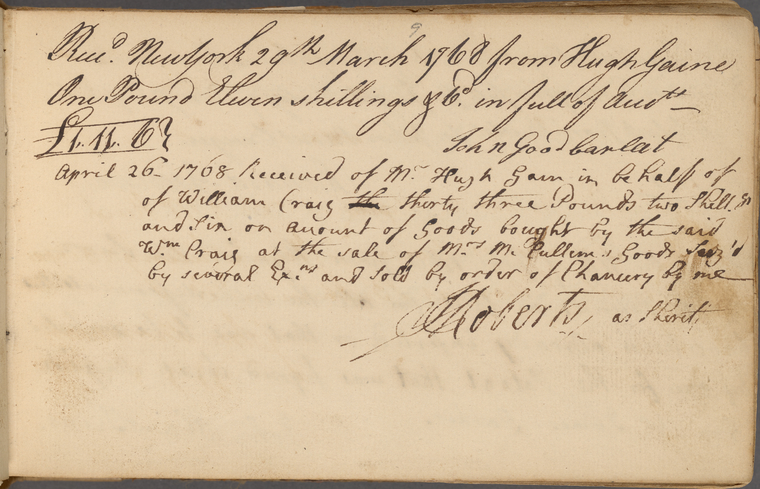 9
Recd. NewYork 29th March 1768 from Hugh Gaine
One Pound Eleven shillings & 6d. in full of Accts
£1.11.6}
John Goodbarlat
April 26 - 1768 Received of Mr. Hugh Gain in behalf of
of William Craig the thirty three Pounds two Shill.
and Six on amount of Goods bought by the said
Wm. Craig at the sale of Mrs. McCullem's Goods Seiz'd
by several Exns. and Sold by order of Chancery by me
Roberts as Sheriff